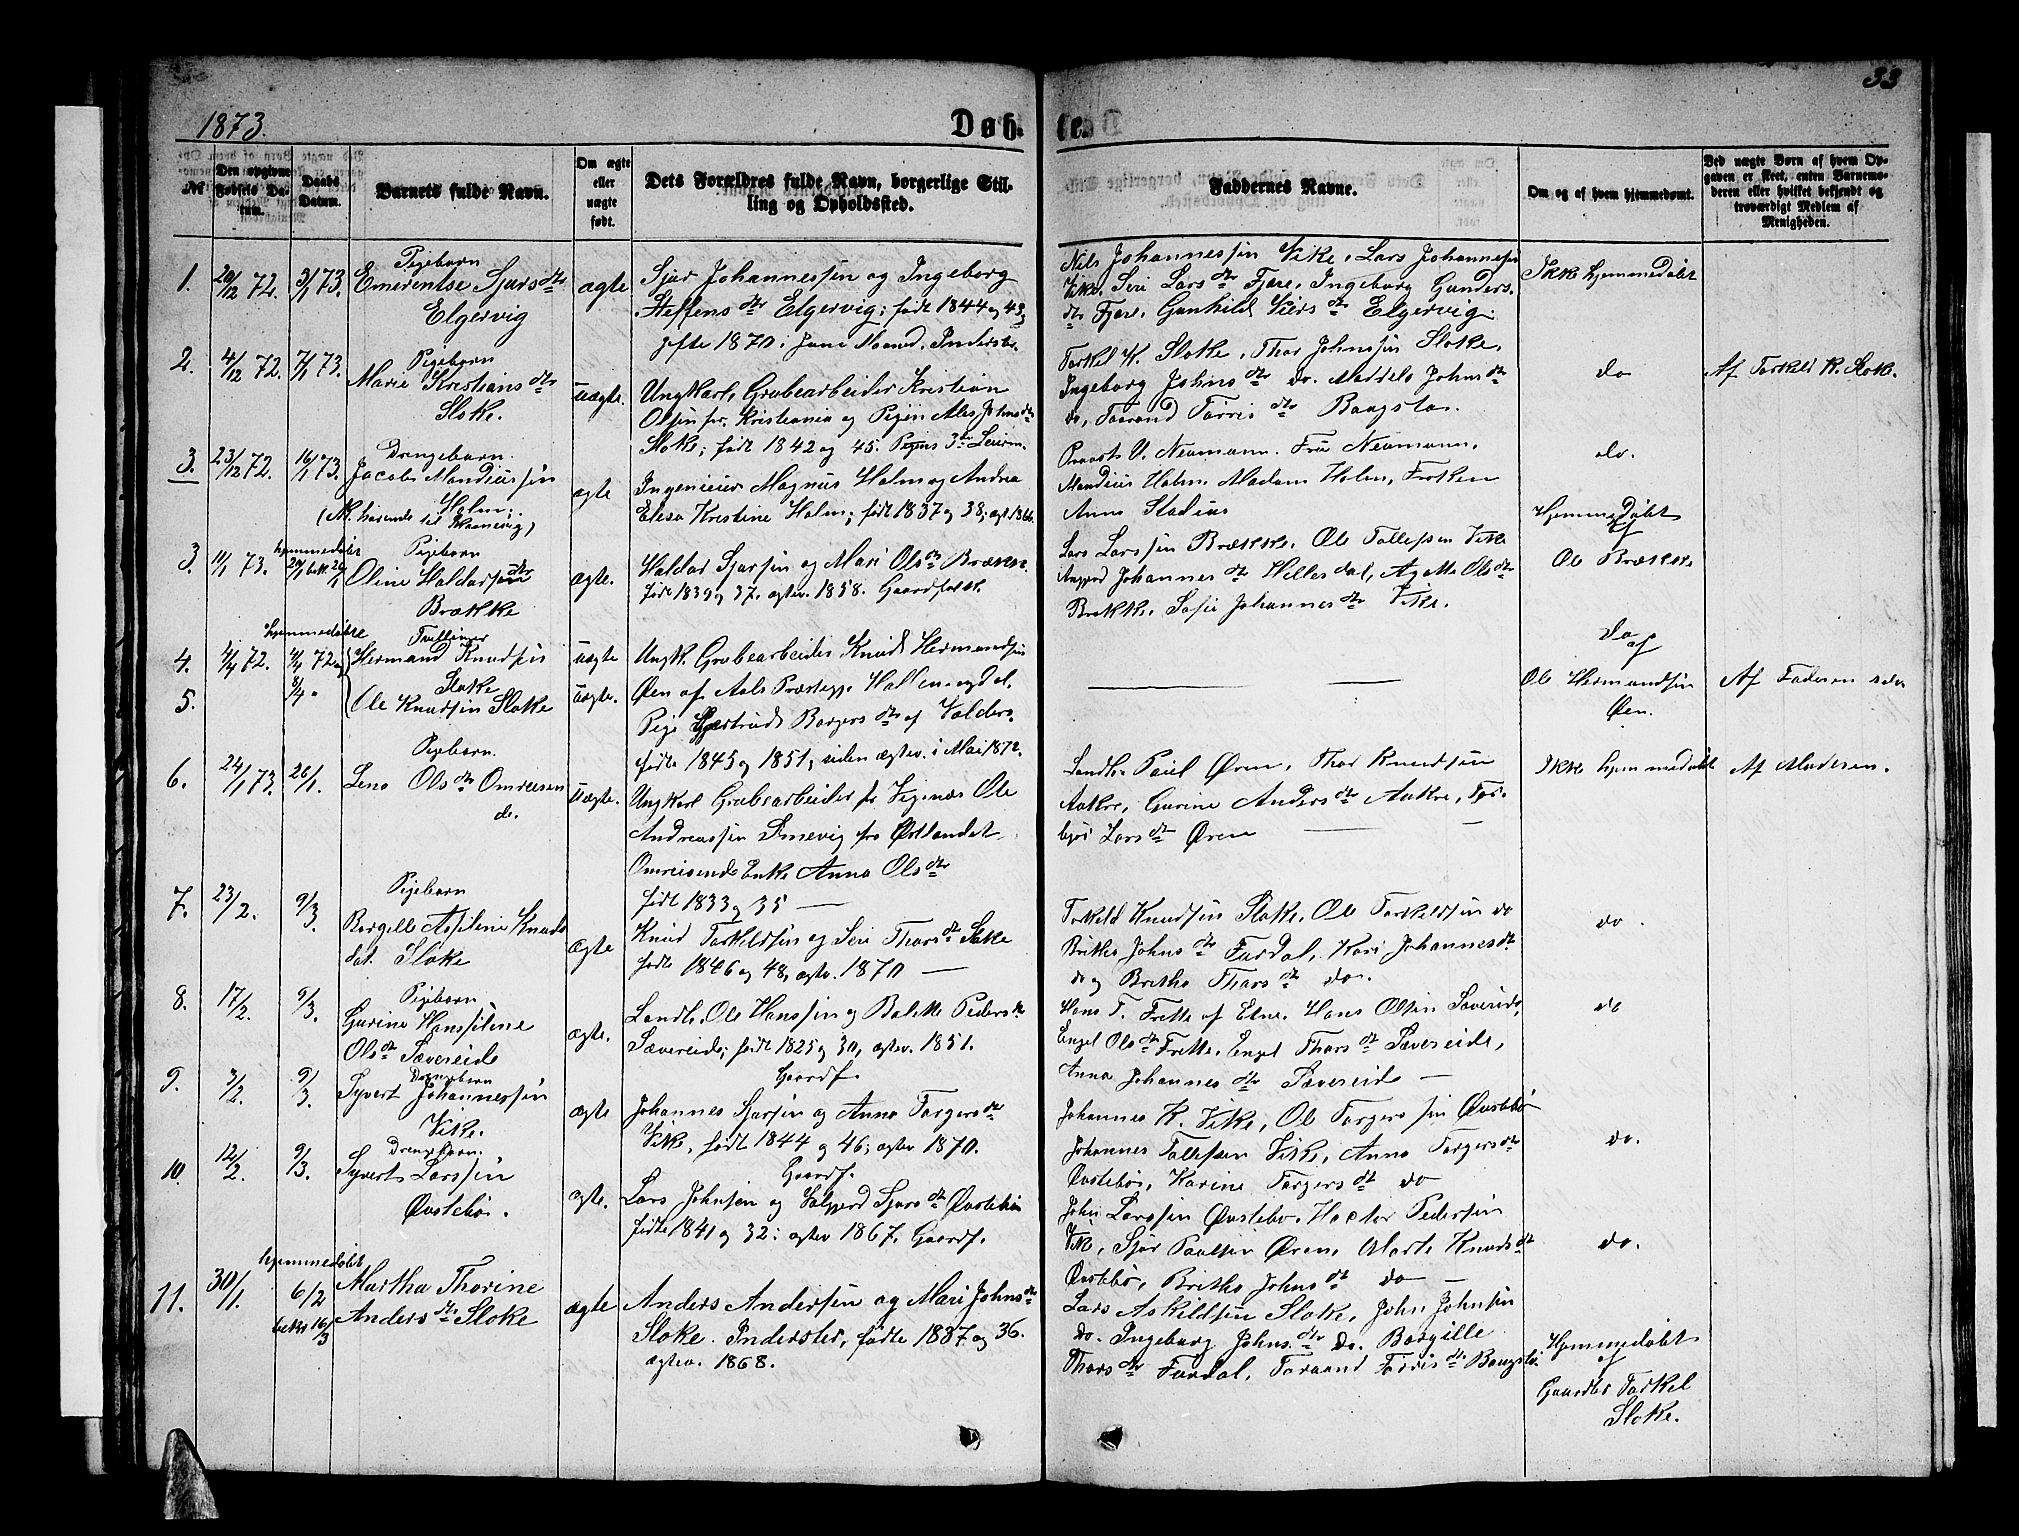 33
1873.
Døb-
te.
№
Den opgivne Fødsels Datum.
Daabs Datum.
Barnets fulde Navn.
Om ægte eller uægte født.
Dets Forældres fulde Navn, borgerlige Stilling og Opholdssted.
Faddernes Navne.
Om og af hvem hjemmedøbt.
Ved uægte Børn af hvem Opgaven er skeet, enten Barnemoderen eller hvilket bekjendt og troværdigt Medlem af Menigheden.
1. 20/12 72. 3/1 73.
Pigebarn
Emerentse Sjurs dtr
Elgervig
ægte
Sjur Johannessøn og Ingeborg
Steffens dtr Elgervig; født 1844 og 43,
gifte 1870 i Juni Maaned. Inderster.
Nils Johannessøn Vike, Lars Johannessøn
Vike, Seri Lars dtr Fjære, Ingeborg Gunders-
dtr Fjære, Gunhild Siers dtr Elgervig.
Ikke hjemmedøbt
2. 4/12 72. 7/1 73.
Pigebarn
Marie Kristians dtr
Sloke.
uægte.
Ungkarl, Grubearbeider Kristian
Olsen fr. Kristiania og Pigen Ales Johns dtr
Sloke; født 1842 og 45. Pigens 3de Leierm.
Torkel K. Sloke, Thor Johnssøn Sloke,
Ingeborg Johns dtr do. Maddele Johns dtr
do, Taarand Torris dtr Baugstø.
do
Af Torkild K. Sloke.
3. 23/12 72. 16/1 73.
Drengebarn.
Jacob Mandiussøn
Holm;
ægte
Ingenieur Magnus Holm og Andrea
Elisa Kristine Holm; født 1837 og 38; ægt. 1866.
Provst V. Neumann. Fru Neumann.
Mandius Holm, Madam Holm, Frøken
Anna Stadius
do.
3. 11/1 73.
hjemmedøbt
Pigebarn
Oline Haldorsdtr
Brække
ægte.
Haldor Sjursøn og Mari Ols dtr Brække.
Født 1839 og 37, ægtev. 1858. Gaardfolk.
Lars Larssøn Brække, Ole Tollefsen Vike
Johannes dtr Hillesdal, Agatte Ols dtr
Brække, Sofie Johannes dtr Vike.
Hjemmedøbt
af
Ole Brække
4. 4/4 72. 4/4 72
8/4 "
hjemmedøbte
Tvillinger
Hermand Knudsøn
Sloke
uægte
Ungk. Grubearbeider Knud Hermandsøn
5.
Ole Knudsøn Sloke
uægte.
Øen af Aals Præstegj. Hallingdal.
Pige Gjertrud Borgers dtr af Valders.
Født 1845 og 1851, siden ægtev. i Mai 1872.
do
af
Ole Hermandsøn
Øen.
Af Faderen selv
6. 24/1 73. 26/1.
Pigebarn.
Lena Ols dtr Omreisen
de.
uægte.
Ungkarl Grubearbeider fr Vigsnæs Ole
Andreassøn Smevig fra Østlandet
Omreisende Enke Anna Ols dtr
født 1833 og 35
Landh. Paul Øren, Thor Knudsøn
Aakre, Gurine Anders dtr Aakre, Tor-
bjør Lars dtr Øren
Ikke hjemmedøbt
Af Moderen.
7. 23/2. 9/3.
Pigebarn
Borgille Aslene Knuds
dat. Sloke
ægte
Knud Torkildsøn og Seri Thors dtr Sloke
født 1846 og 48, ægtev. 1870
Torkild Knudsøn Sloke, Ole Torkildsøn do
Britha Johns dtr Furdal, Kari Johannes dtr
do og Britha Thors dtr do.
do.
8. 17/2. 9/3.
Pigebarn
Gurine Hansiline
Ols dtr Sævereide
ægte.
Landh. Ole Hanssøn og Balette Peders dtr
Sævereide; født 1825 og 30, ægtev. 1851.
Gaardf.
Hans T. Frette af Etne, Hans Olsen Sævereide,
Engel Ols dtr Frette, Engel Thors dtr Sævereide,
Anna Johannes dtr Sævereide
do
9. 3/2. 9/3.
Drengebarn
Syvert Johannessøn
Vike.
ægte
Johannes Sjursøn og Anna Torgers dtr
Vike, født 1844 og 46; ægtev 1870.
Gaardf.
Johannes K. Vike, Ole Torgerssøn Øvstebø
Johannes Tollefsen Vike, Anna Torgers dtr
Øvstebø, Karine Torgers dtr do
do.
10. 12/2. 9/3.
Drengebarn.
Syvert Larssøn
Øvstebø.
ægte.
Lars Johnsøn og Salgjerd Sjurs dtr Øvstebø
fødte 1841 og 32; ægtev 1867. Gaardf.
John Larssøn Øvstebø, Hector Pedersøn
Vik, Sjur Poulsen Øren, Marte Knuds dtr
Øvstebø, Britha Johns dtr do
do.
11. 30/1. 6/2
hjemmedøbt
bekr 16/3
Martha Thorine
Anders dtr Sloke
ægte
Anders Andersøn og Mari Johns dtr
Sloke. Inderster, fødte 1837 og 36.
ægtev. 1868.
Lars Askildsøn Sloke, John Johnsøn
do. Ingeborg Johns dtr do. Borgille
Thors dtr Furdal, Toraand Torris dtr Baugstø.
Hjemmedøbt
af
Gaardbr Torkel
Sloke.